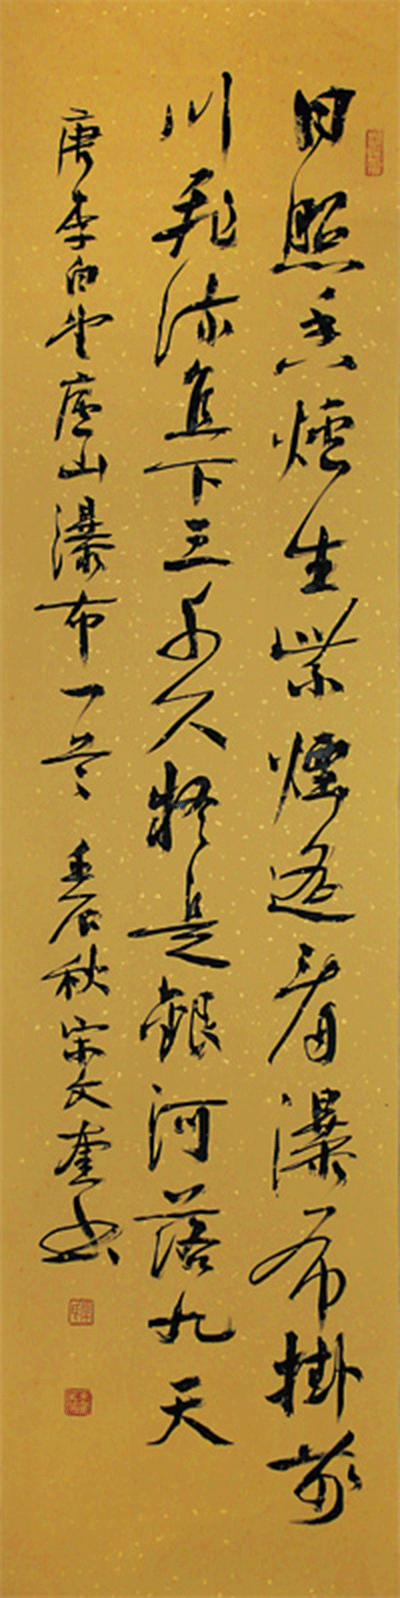 日照香爐生紫煙遙看瀑布掛前
川飛流直下三千尺疑是銀河落九天
唐李白望廬山瀑布一首 壬辰秋宋文奎书